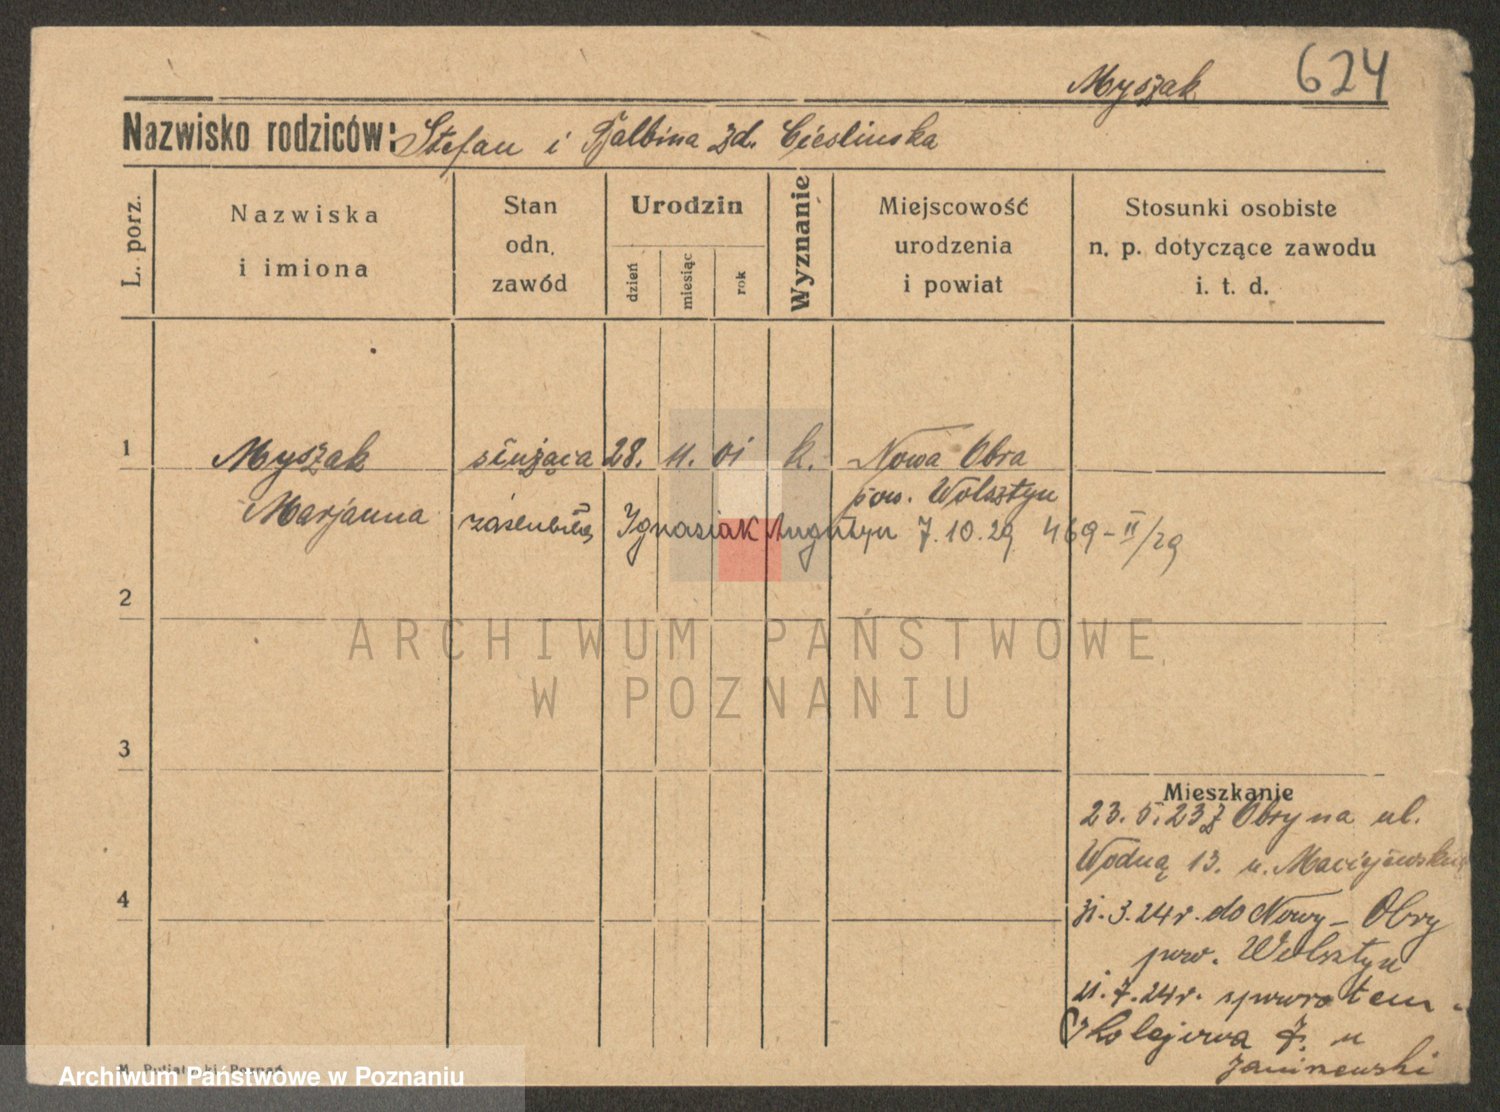 Myszak 624
Nazwisko rodziców: Stefan i Balbina zd. Cieslinska
L. porz.
Nazwiska
i imiona
Stan
odn.
zawód
Urodzin
dzień
miesiąc
rok
Wyznanie
Miejscowość
urodzenia
i powiat
Stosunki osobiste
n. p. dotyczące zawodu
i. t. d.
1 Myszak służąca 28. 11. 01 k. Nowa Obra
pow. Wolsztyn
Marjanna zaślubiła Ignasiak Augustyn 7.10.29 469-II/29
2
ARCHIWUM PAŃSTWOWE
W POZNANIU
3
Mieszkanie
23. 5. 23 z Obry na ul.
Wodną 13. u. Maciejewski
4
31.3.24r. do Nowy-Obry
pow. Wolsztyn
11.7.24r. spowrotem
Kolejowa 7. u
Janiszewski
Archiwum Państwowe w Poznaniu